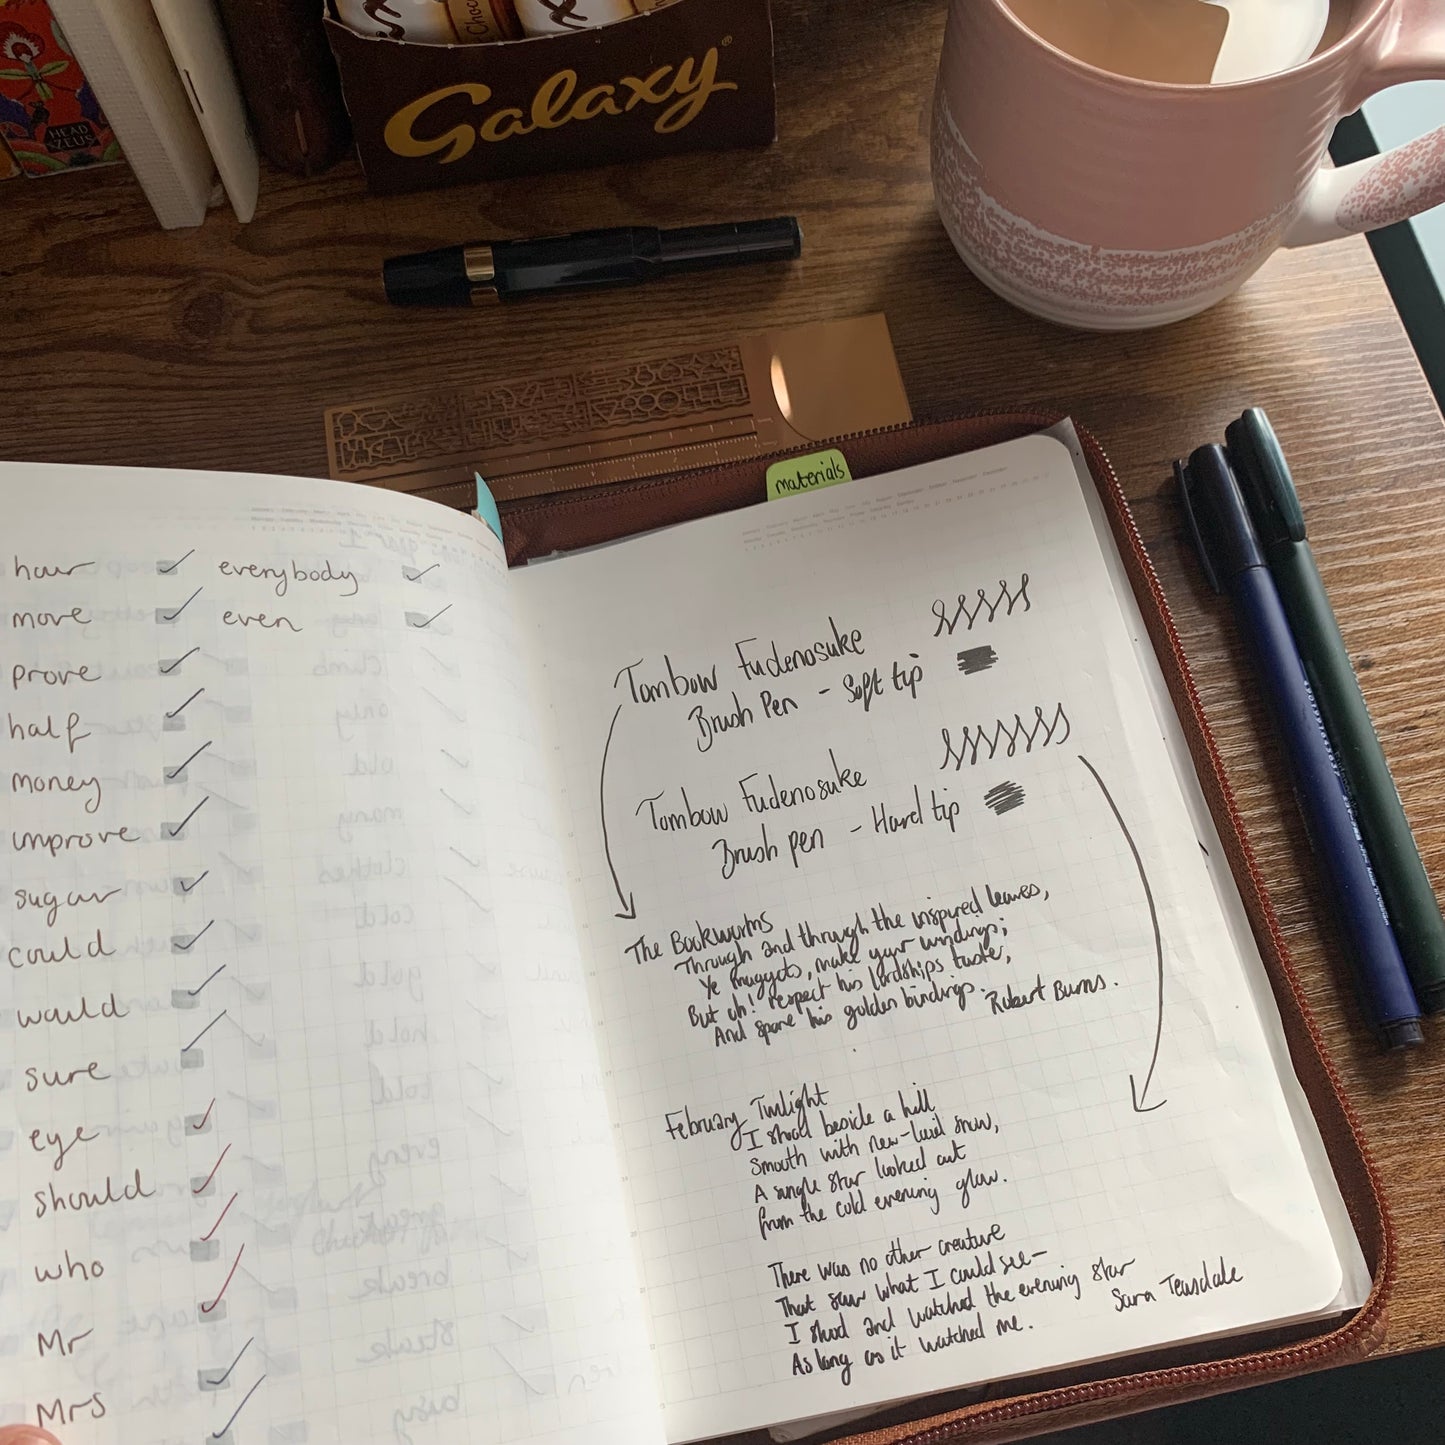 HEAD
ZEUS
Galaxy
materials
hour
everybody
move
even
prove
half
money
improve
sugar
could
would
sure
eye
should
who
Mr
Mrs
Tombow Fudenosuke
Brush Pen - Soft tip
Tombow Fudenosuke
Brush pen - Hard tip
The Bookworms
Through and through the inspired leaves,
Ye maggots, make your windings;
But oh! respect his lordships taste,
And spare his golden bindings.
Robert Burns.
February Twilight
I stood beside a hill
Smooth with new-laid snow,
A single star looked out
from the cold evening glow.
There was no other creature
That saw what I could see—
I stood and watched the evening star
As long as it watched me.
Sara Teasdale